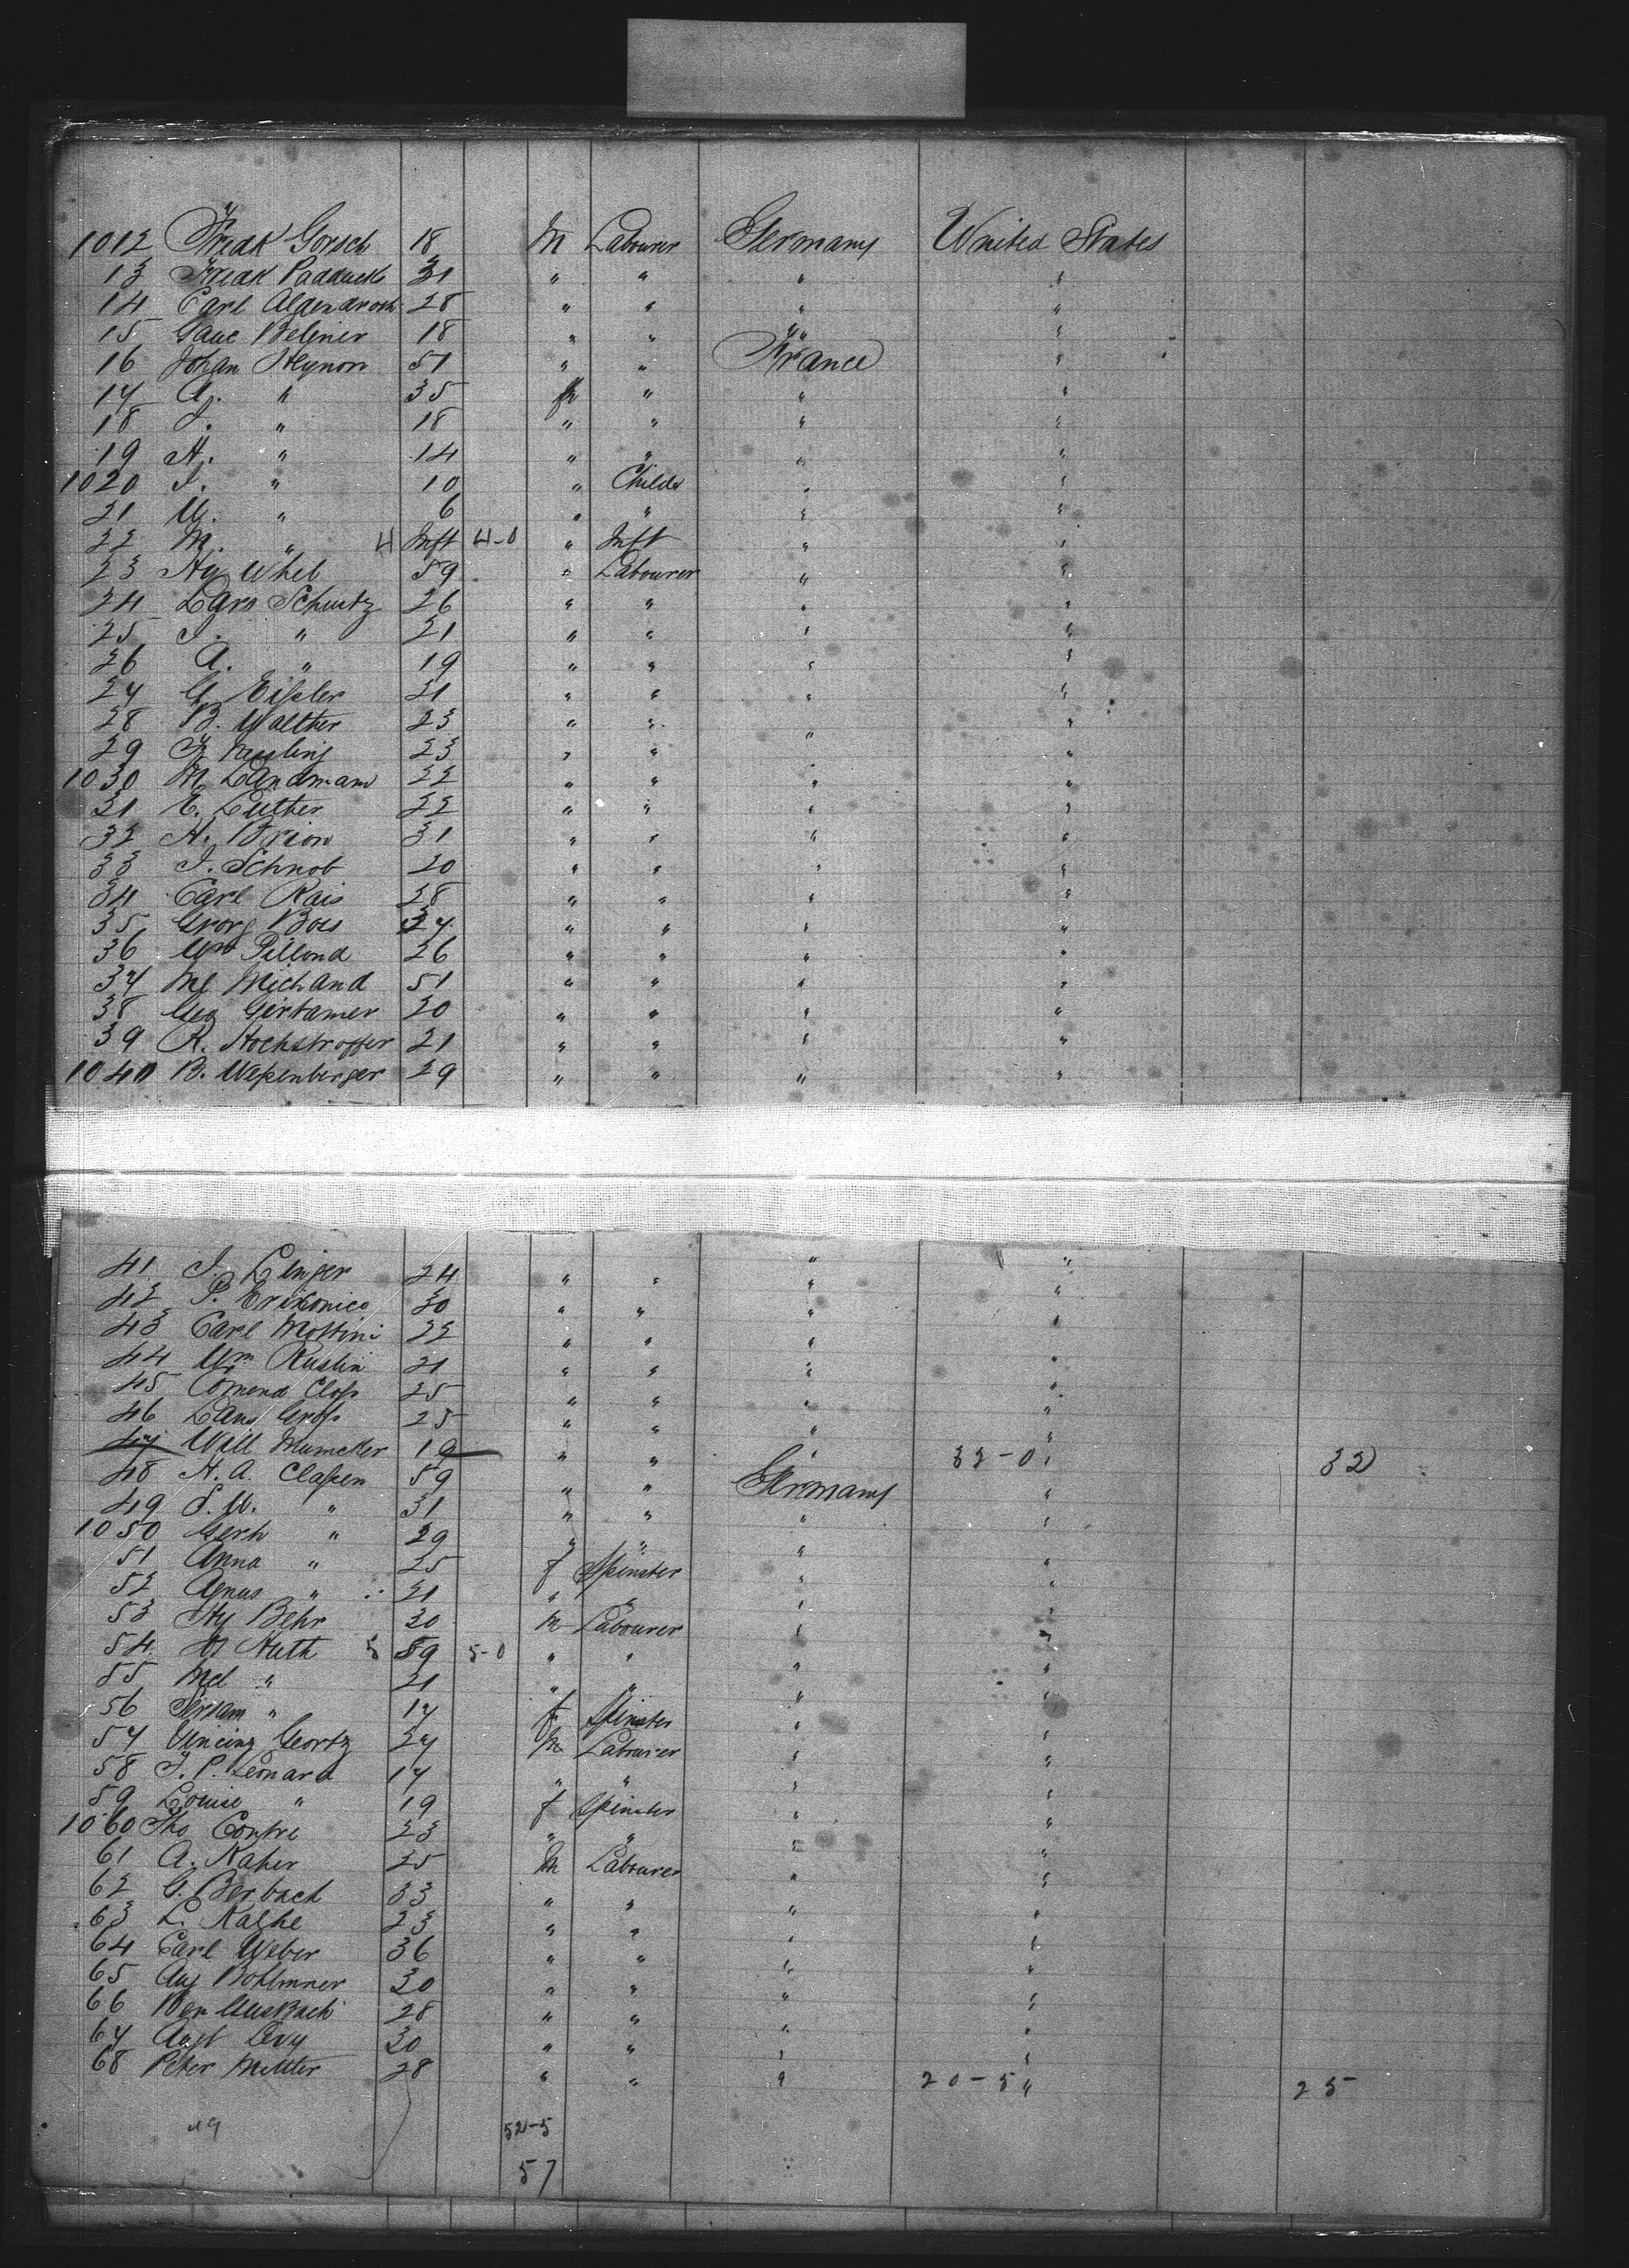 1012 Fredk Gorsch 18 M Labourer Germany United States
13 Fredk Padduck 31 " " " "
14 Carl Aldendroth 28 " " " "
15 Beliner 18 " " " "
16 Johan Heynon 51 " " France "
17 A. " 35 " " "
18 J. " 18 " " " "
19 H. " 14 " " " "
1020 J. " 10 " Child " "
21 U. " 6 " " " "
22 M. " 4 Inft 4-0 " Inft " "
23 Hy Uhel 59 " Labourer " "
24 Lars Schutz 26 " " " "
25 J. " 21 " " " "
26 A. " 19 " " " "
27 G. Eißler 21 " " " "
28 B. Walther 23 " " " "
29 23 " " " "
1030 M. Landmann 22 " " " "
31 E. Luther 22 " " " "
32 H. Brion 31 " " " "
33 J. Schnob 20 " " " "
34 Carl Rais 28 " " " "
35 Georg Boss " " " "
36 Wm Pillond 26 " " " "
37 Ml Michand 51 " " " "
38 Geo Girtamer 20 " " " "
39 R. Hochstroffer 21 " " " "
1040 B. Weßenberger 29 " " " "
41 J. Linger 24 " " " "
42 P. Erixonico 30 " " " "
43 Carl Mottini 22 " " " "
44 Wm Ruslin 21 " " " "
45 Cloß 25 " " " "
46 Lans Groß 25 " " " "
47 Will Mumekler 19 " " " 32-0 " 32
48 H. A. Claßen 59 " " Germany "
49 S. W. " 31 " " " "
1050 Gerh " 29 " " " "
51 Anna " 25 f Spinster " "
52 Agnus " 21 " " " "
53 Hy Behr 30 M Labourer " "
54 Huth 5 59 5-0 " " " "
55 Mel " 21 " " " "
56 " 17 f Spinster " "
57 Vincinz Geortz 27 M Labourer " "
58 J. P. Leonard 17 " " " "
59 Louise " 19 f Spinster " "
1060 Tho Contre 23 " " " "
61 A. Kaher 25 M Labourer " "
62 G. Berbach 33 " " " "
63 L. Kalhe 23 " " " "
64 Carl Weber 36 " " " "
65 Aug Bohlmner 30 " " " "
66 Ben Ausbach 28 " " " "
67 Aug Levy 30 " " " "
68 Peter Mettter 28 " " " 20-5 " 25
19 52-5
57